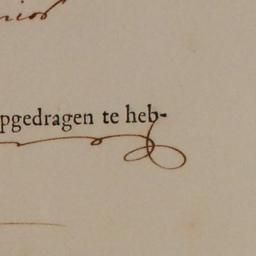 nior
pgedragen te heb-